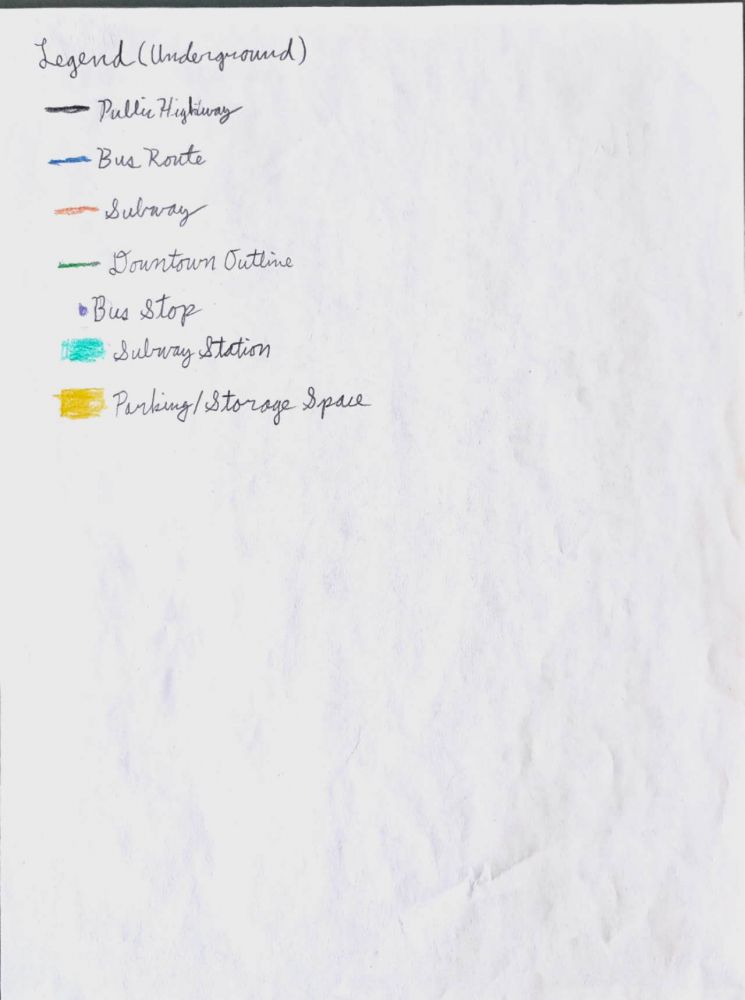 Legend (Underground)
Public Highway
Bus Route
Subway
Downtown Outline
Bus Stop
Subway Station
Parking/Storage Space